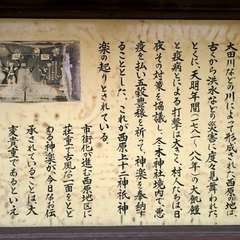 太田川などの川によって形成された西原の地は、
古くから洪水などの災害に度々見舞われた
とくに、天明年間(一七八一~八九)の大飢饉
と疫病とによる打撃は大きく、村人たちは日
夜その対策を協議し、冬木神社境内で、悪
疫を払い五穀豊穣を祈って、神楽を奉納す
ることとした。これが西原上十二神祇神
楽の起りとされている。
市街化が進む西原地区に
荘重で古風な一面をとど
める神楽が今日なお伝
承されていることは大
変貴重であるといえ